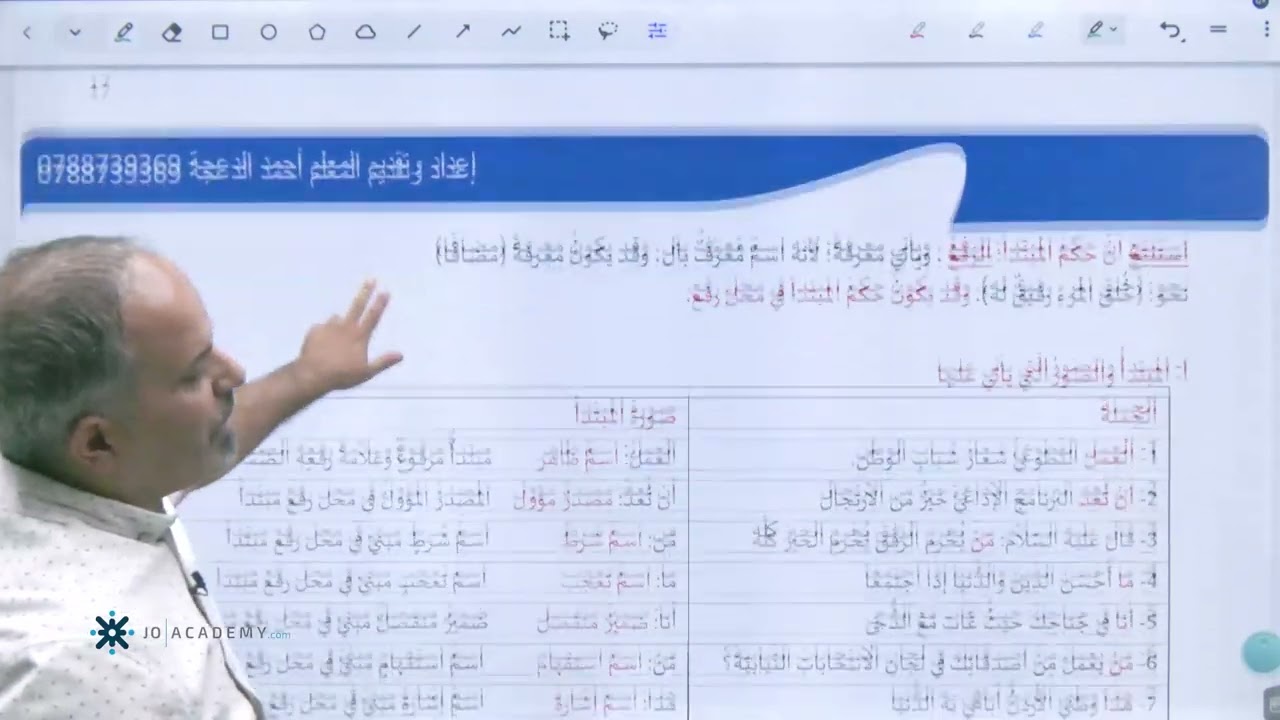 ١٦
إعداد وتقديم المعلم أحمد الدعجة 0788739369
أستنتج أن حكم المبتدأ: الرفع، ويأتي معرفة؛ لأنه اسم معرف بأل، وقد يكون معرفة (مضافًا)
نحو: (خلق المرء رفيق له). وقد يكون حكم المبتدأ في محل رفع.
أ: المبتدأ والصور التي يأتي عليها
الجملة	صورة المبتدأ
1- العمل التطوعي شعار شباب الوطن.	العمل: اسم ظاهر	مبتدأ مرفوع وعلامة رفعه
2- أن تعد البرنامج الإذاعي خير من الارتجال	أن تعد: مصدر مؤول	المصدر المؤول في محل رفع مبتدأ
3- قال عليه السلام: من يحرم الرفق يحرم الخير كله	من: اسم شرط	اسم شرط مبني في محل رفع مبتدأ
4- ما أحسن الدين والدنيا إذا اجتمعا	ما: اسم تعجب	اسم تعجب مبني في محل رفع مبتدأ
5- أنا في جناحك حيث غاب مع الدجى	أنا: ضمير منفصل	ضمير منفصل مبني في محل رفع
6- من يعمل من أصدقائك في لجان الانتخابات النيابية؟	من: اسم استفهام	اسم استفهام مبني في محل رفع
7- هذا وطني الأردن أباهي به الدنيا	هذا: اسم إشارة	اسم إشارة مبني في محل رفع
JO ACADEMY.com